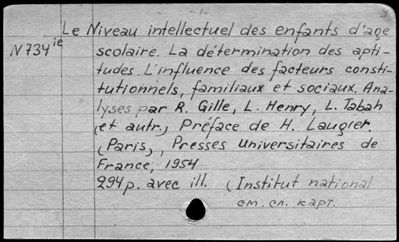 Le Niveau intellectuel des enfants d'age
N734ie
scolaire. La détermination des apti-
tudes. L'influence des facteurs consti-
tutionnels, familiaux et sociaux. Ana-
lyses par R. Gille, L. Henry, L. Tabah
(et autr.) Préface de H. Laugier.
(Paris), Presses universitaires de
France, 1954
294p. avec ill. (Institut national
см. сл. карт.